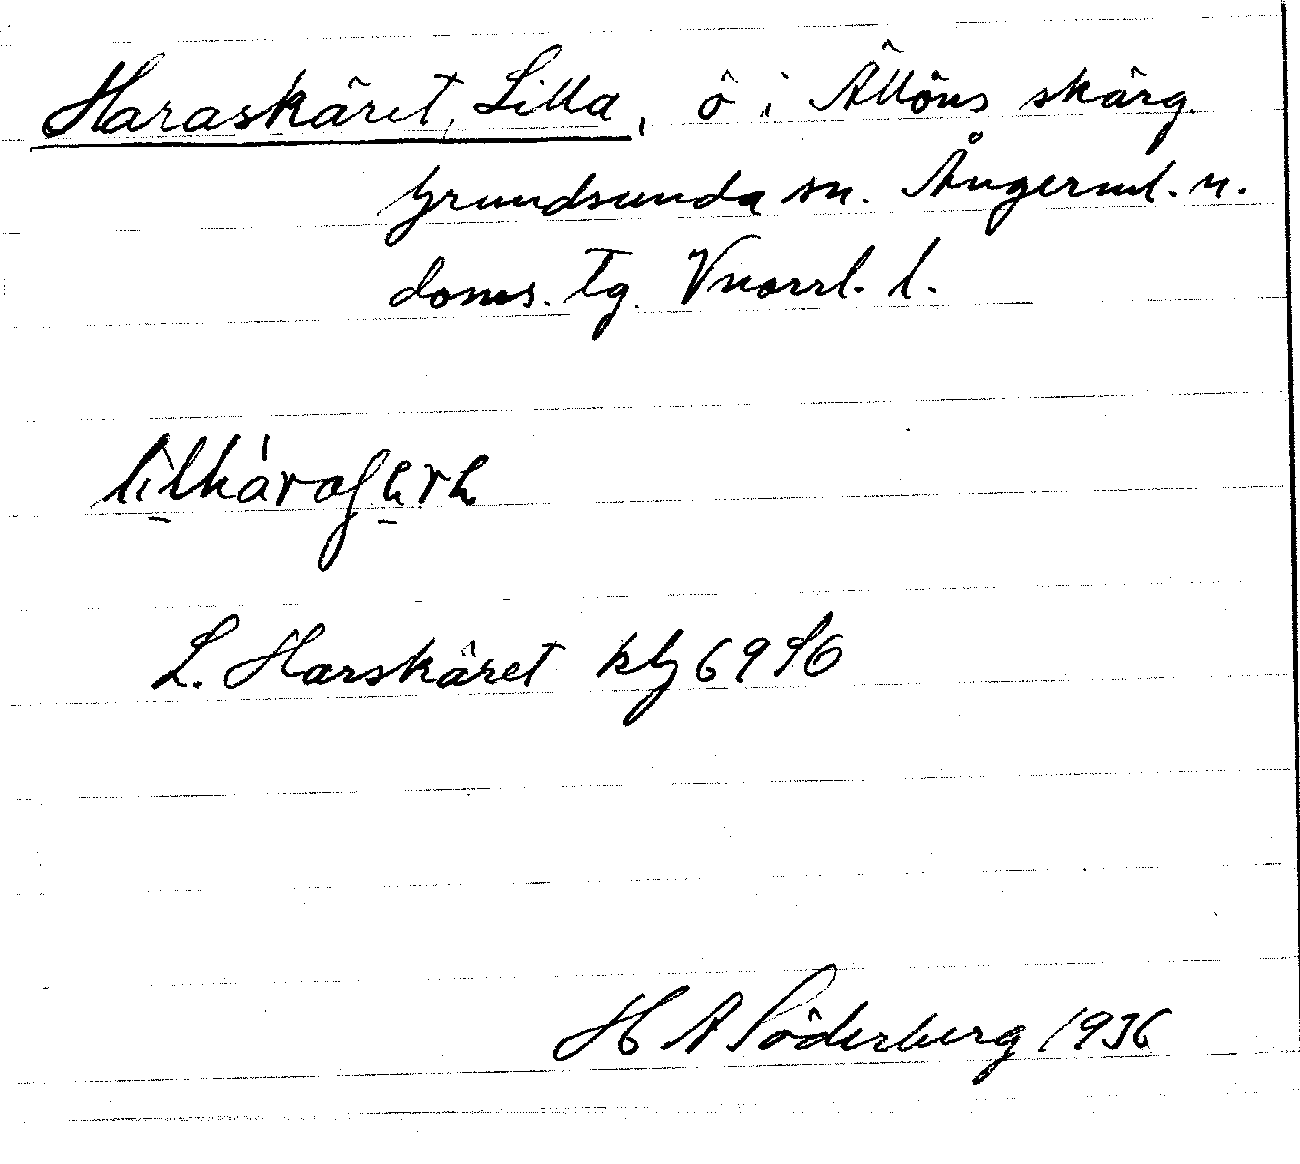 Haraskäret, Lilla, ö i Ällöns skärg.
Grundsunda sn. Ångerml. n.
doms. tg. Vnorrl. l.
L. Harskäret kbl 69 S6
H A Söderberg 1936